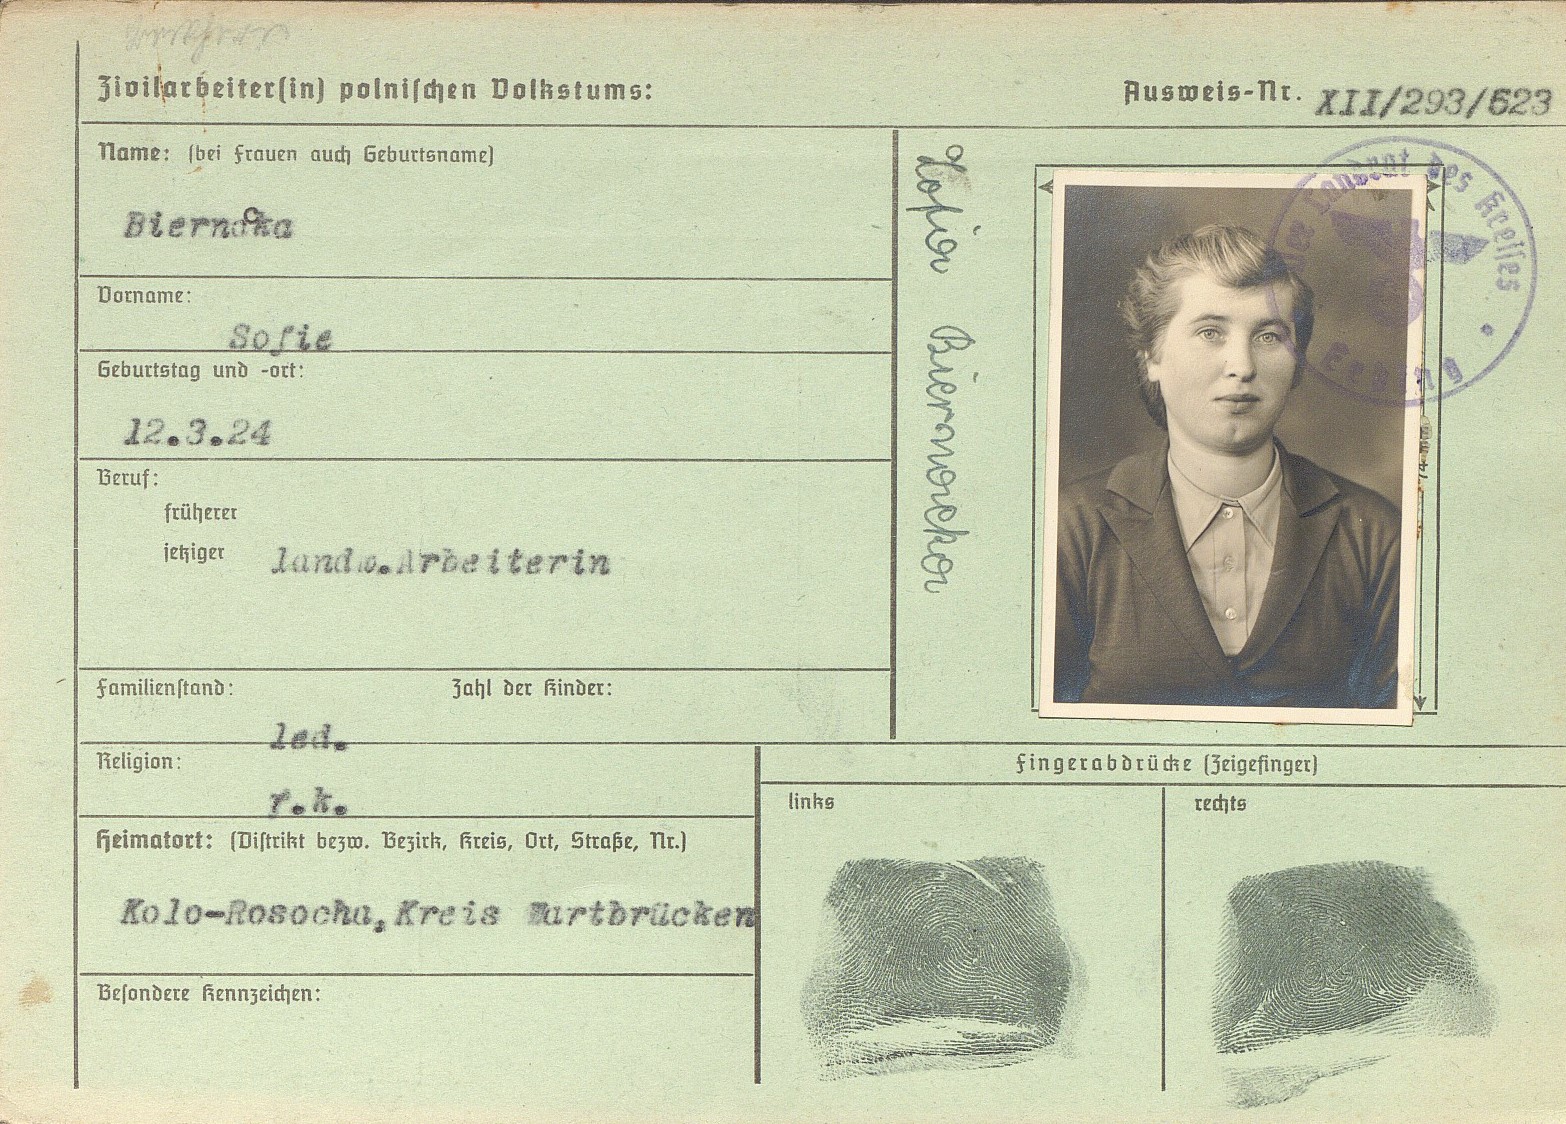 Zivilarbeiter(in) polnischen Volkstums:
Ausweis-Nr. XII/293/623
Name: (bei Frauen auch Geburtsname)
Biernacka
Vorname:
Sofie
Geburtstag und -ort:
12.3.24
Beruf:
früherer
jetziger landw.Arbeiterin
Familienstand: Zahl der Kinder:
led.
Religion:
r.k.
Heimatort: (Distrikt bezw. Bezirk, Kreis, Ort, Straße, Nr.)
Kolo-Rosocha,Kreis Wartbrücken
Besondere Kennzeichen:
Zofia Biernacka
Der Landrat des Kreises
Fingerabdrücke (Zeigefinger)
links
rechts